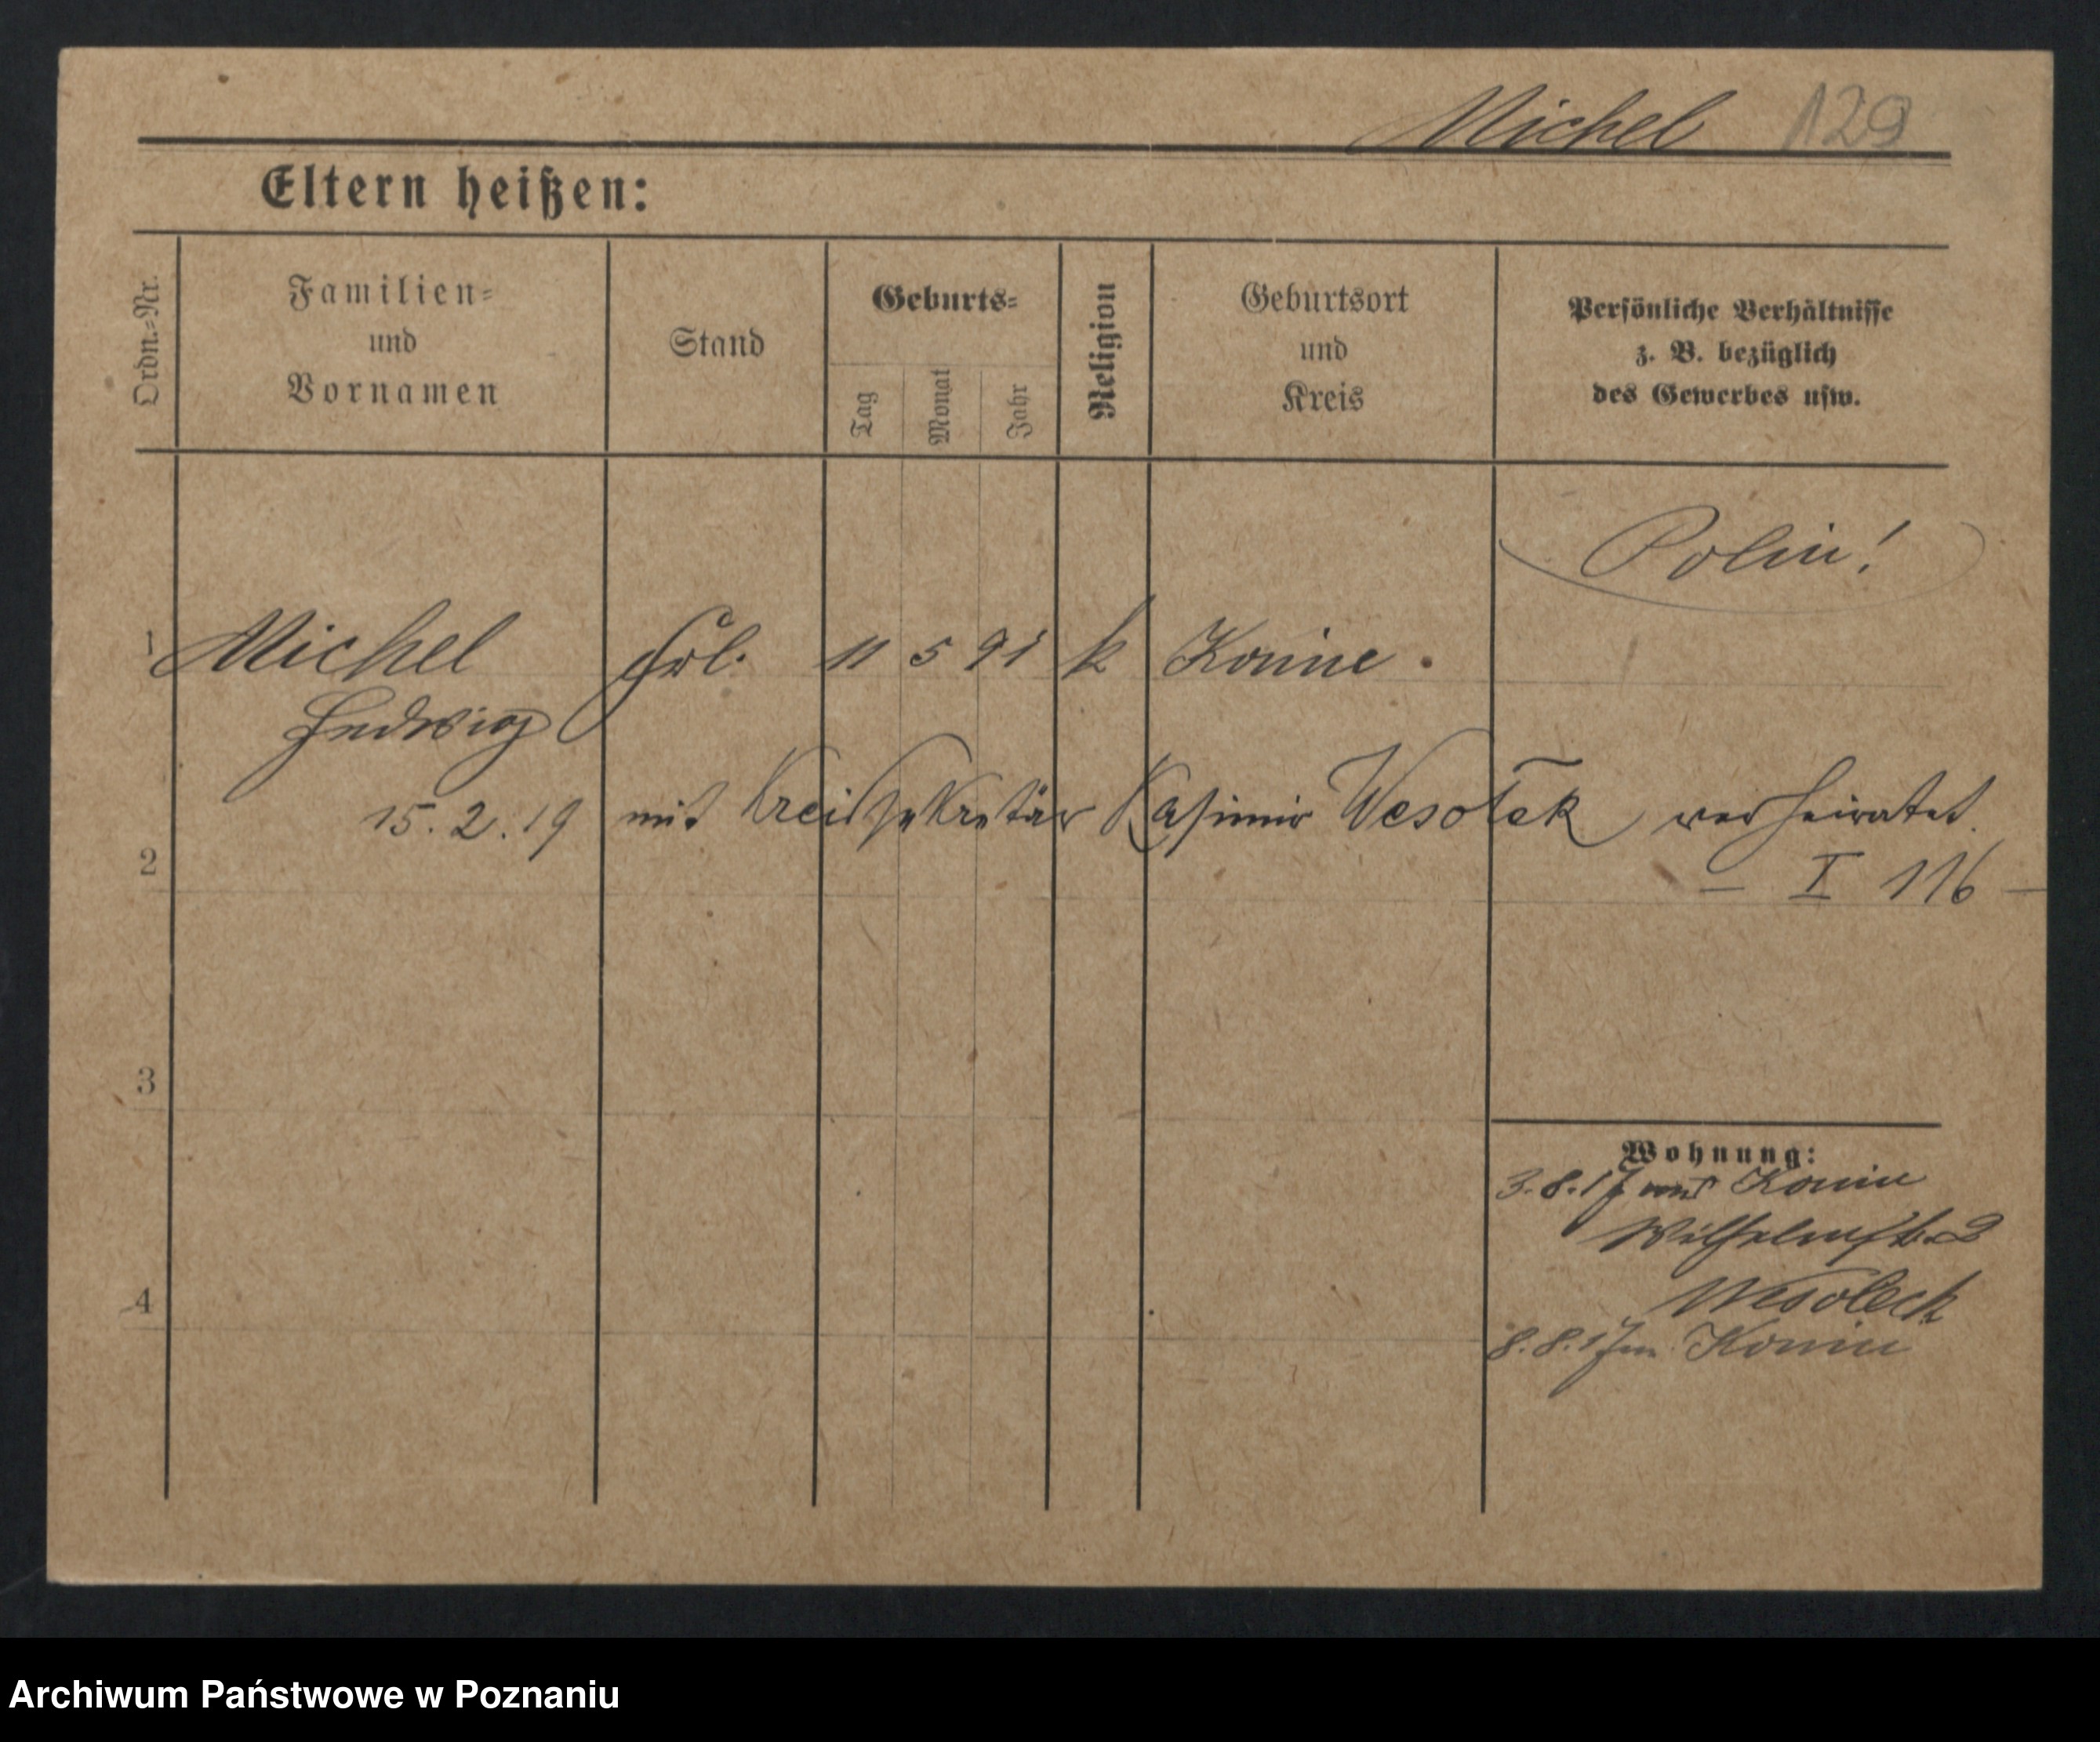 Michel 129
Eltern heißen:
Ordn.-Nr.
Familien-
und
Vornamen
Stand
Geburts-
Tag
Monat
Jahr
Religion
Geburtsort
und
Kreis
Persönliche Verhältnisse
z. B. bezüglich
des Gewerbes usw.
Polin!
1 Michel Frl. 11 5 91 k Konine.
Hedwig
15.2.19 mit Kreissekretär Kasimir Wesołek verheiratet.
2 – I 116 –
3
Wohnung:
3.8.17 Konin
Wilhelmstr. 2
4 Wesoleck
8.8.17 Konin
Archiwum Państwowe w Poznaniu